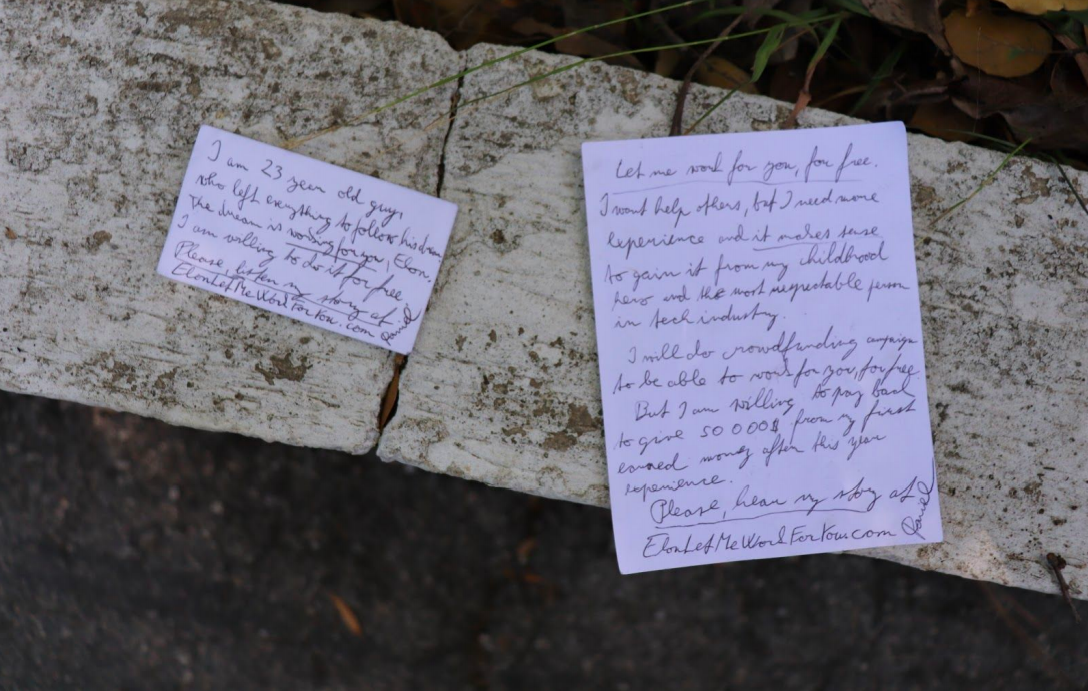 I am 23 year old guy,
who left everything to follow his dream
The dream is working for you, Elon.
I am willing to do it for free
Please, listen my story at
ElonLetMeWorkForYou.com
Let me work for you, for free.
I want help others, but I need more
experience and it makes sense
to gain it from my childhood
hero and the most respectable person
in tech industry.
I will do crowdfunding campaign
to be able to work for you, for free.
But I am willing to pay back
to give 50 000$ from my first
earned money after this year
experience.
Please, hear my story at
ElonLetMeWorkForYou.com